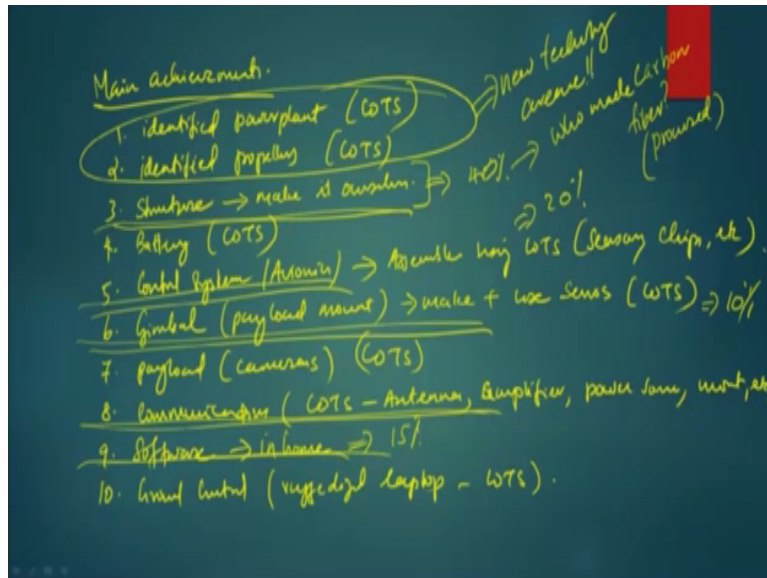 Main achievements.
1. identified powerplant (COTS)
2. identified propellers (COTS)
⇒ new technology
avenue!!
3. Structure → make it ourselves. ⇒ 40% → who made Carbon
fiber?
(procured)
4. Battery (COTS)
⇒ 20%
5. Control System (Avionics) → Assemble using COTS (Sensors, chips, etc).
6. Gimbal (payload mount) → make + use Servos (COTS) ⇒ 10%
7. payload (cameras) (COTS)
8. Communication (COTS - Antenna, amplifier, power, mount, etc
9. Software → in house ⇒ 15%
10. Ground Control (ruggedized laptop - COTS).